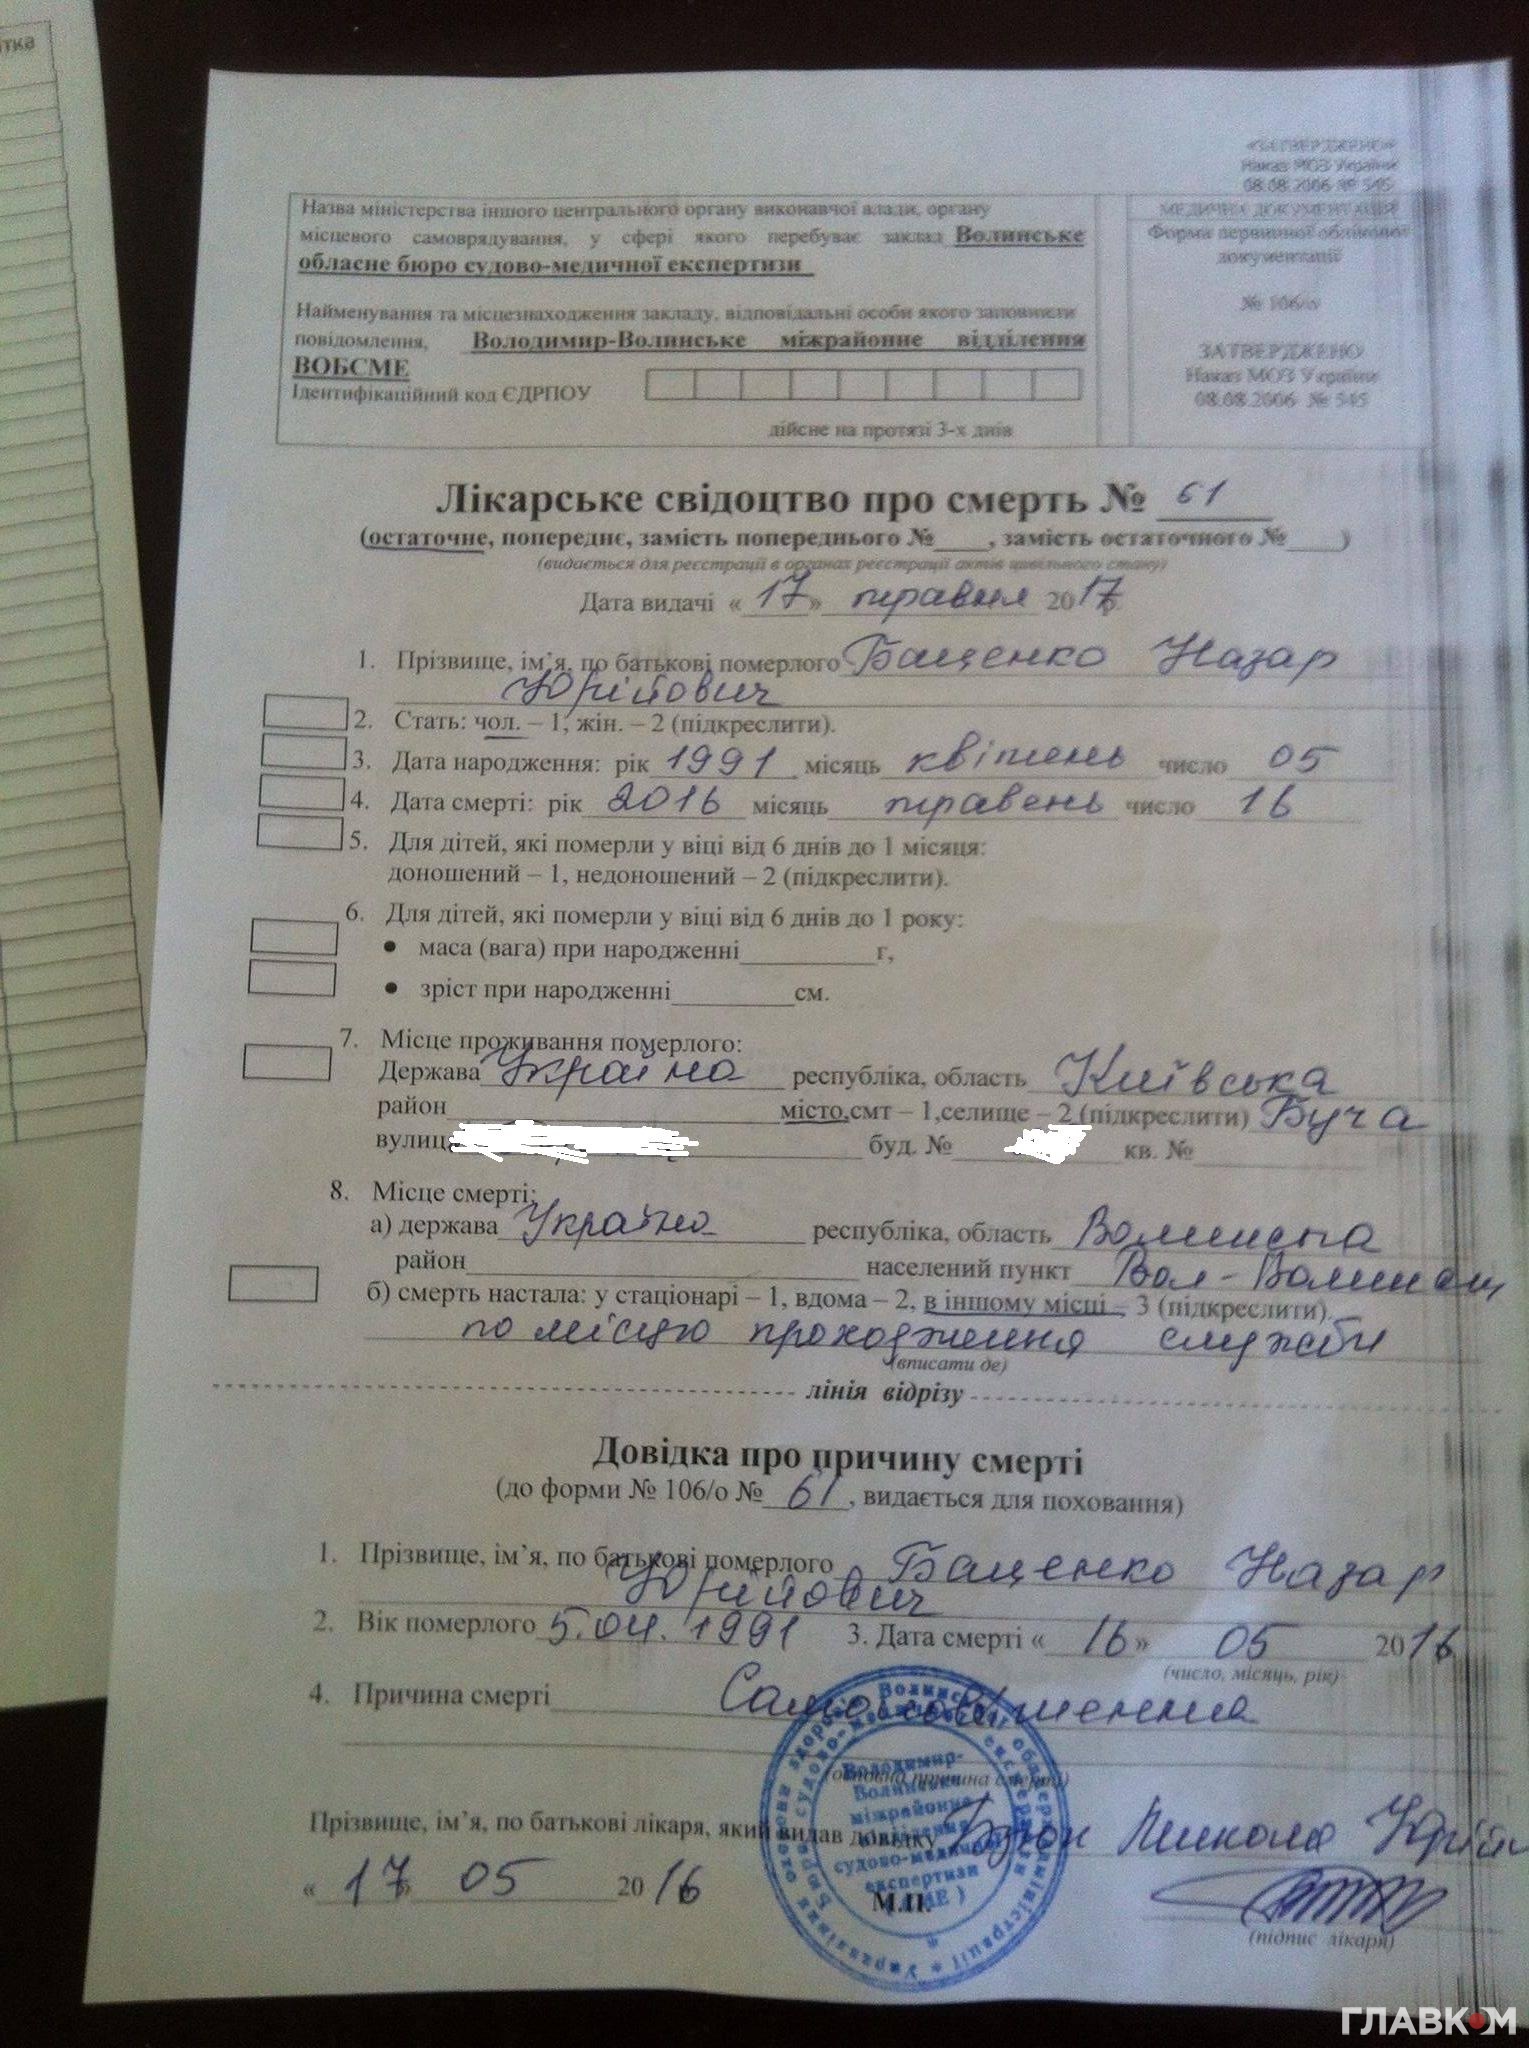 ітка
«ЗАТВЕРДЖЕНО»
Наказ МОЗ України
08.08.2006 № 545
Назва міністерства іншого центрального органу виконавчої влади, органу
місцевого самоврядування, у сфері якого перебуває заклад Волинське
обласне бюро судово-медичної експертизи
МЕДИЧНА ДОКУМЕНТАЦІЯ
Форма первинної облікової
документації
№ 106/о
ЗАТВЕРДЖЕНО
Наказ МОЗ України
08.08.2006 № 545
Найменування та місцезнаходження закладу, відповідальні особи якого заповнили
повідомлення, Володимир-Волинське міжрайонне відділення
ВОБСМЕ
Ідентифікаційний код ЄДРПОУ
дійсне на протязі 3-х днів
Лікарське свідоцтво про смерть № 61
(остаточне, попереднє, замість попереднього №___, замість остаточного №___)
(видається для реєстрації в органах реєстрації актів цивільного стану)
Дата видачі «17» травня 2017р.
1. Прізвище, ім’я, по батькові померлого Бащенко Назар
Юрійович
2. Стать: чол. – 1, жін. – 2 (підкреслити).
3. Дата народження: рік 1991 місяць квітень число 05
4. Дата смерті: рік 2016 місяць травень число 16
5. Для дітей, які померли у віці від 6 днів до 1 місяця:
доношений – 1, недоношений – 2 (підкреслити).
6. Для дітей, які померли у віці від 6 днів до 1 року:
• маса (вага) при народженні__________г,
• зріст при народженні_________см.
7. Місце проживання померлого:
Держава Україна республіка, область Київська
район місто,смт – 1,селище – 2 (підкреслити) Буча
вулиця буд. № кв. №
8. Місце смерті:
а) держава Україна республіка, область Волинська
район населений пункт Вол-Волинськ
б) смерть настала: у стаціонарі – 1, вдома – 2, в іншому місці – 3 (підкреслити).
по місцю проходження служби
(вписати де)
лінія відрізу
Довідка про причину смерті
(до форми № 106/о № 61, видається для поховання)
1. Прізвище, ім’я, по батькові померлого Бащенко Назар
Юрійович
2. Вік померлого 5.04.1991 3. Дата смерті «16» 05 2016
(число, місяць, рік)
4. Причина смерті
(основна причина смерті)
Прізвище, ім’я, по батькові лікаря, який видав довідку Микола
«17» 05 2016
Володимир-
Волинське
міжрайонне
відділення
судово-медичної
експертизи
М.П.
(підпис лікаря)
ГЛАВКОМ